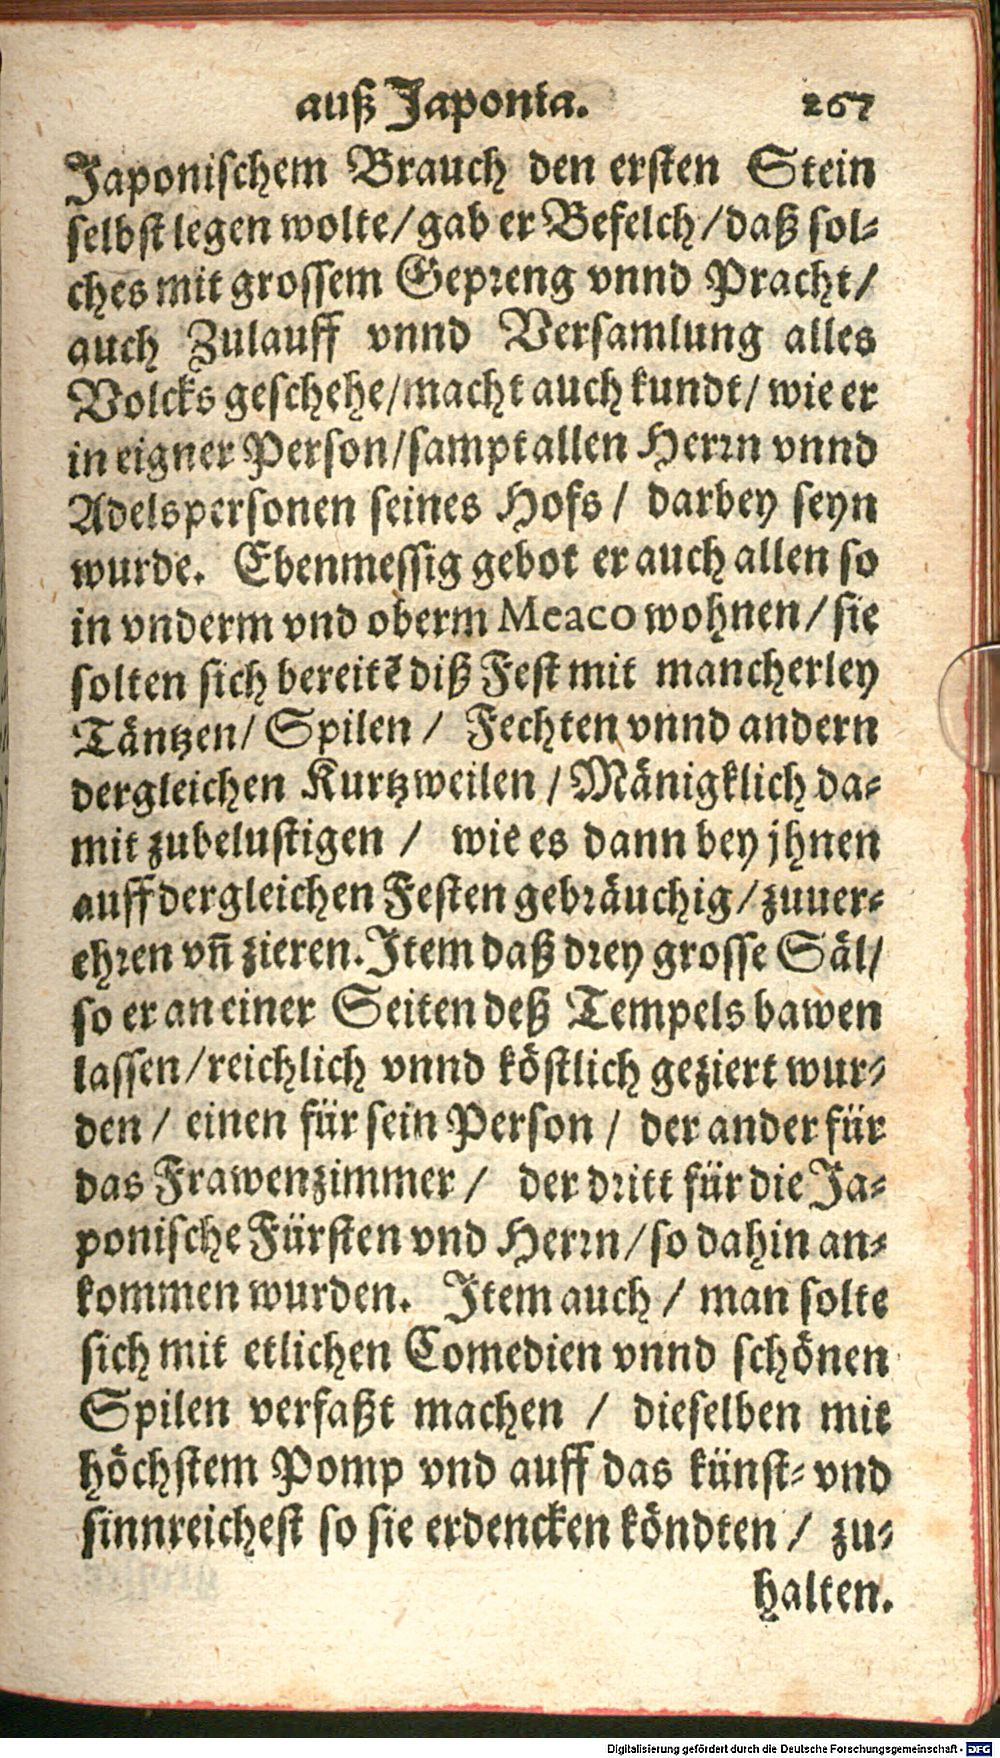 auß Japonia. 267
Japonischem Brauch den ersten Stein
selbst legen wolte/gab er Befelch/daß sol-
ches mit grossem Gepreng vnnd Pracht/
auch Zulauff vnnd Versamlung alles
Volcks geschehe/macht auch kundt/ wie er
in eigner Person/sampt allen Herrn vnnd
Adelspersonen seines Hofs/ darbey seyn
wurde. Ebenmessig gebot er auch allen so
in vnderm vnd oberm Meaco wohnen/ sie
solten sich bereitē diß Fest mit mancherley
Täntzen/ Spilen / Fechten vnnd andern
dergleichen Kurtzweilen / Mänigklich da-
mit zubelustigen / wie es dann bey jhnen
auff dergleichen Festen gebräuchig/zuuer-
ehren vn̄ zieren. Item daß drey grosse Säl/
so er an einer Seiten deß Tempels bawen
lassen/reichlich vnnd köstlich geziert wur-
den / einen für sein Person / der ander für
das Frawenzimmer / der dritt für die Ja-
ponische Fürsten vnd Herrn/so dahin an-
kommen wurden. Item auch / man solte
sich mit etlichen Comedien vnnd schönen
Spilen verfaßt machen / dieselben mit
höchstem Pomp vnd auff das künst- vnd
sinnreichest so sie erdencken köndten / zu-
halten.
Digitalisierung gefördert durch die Deutsche Forschungsgemeinschaft - DFG